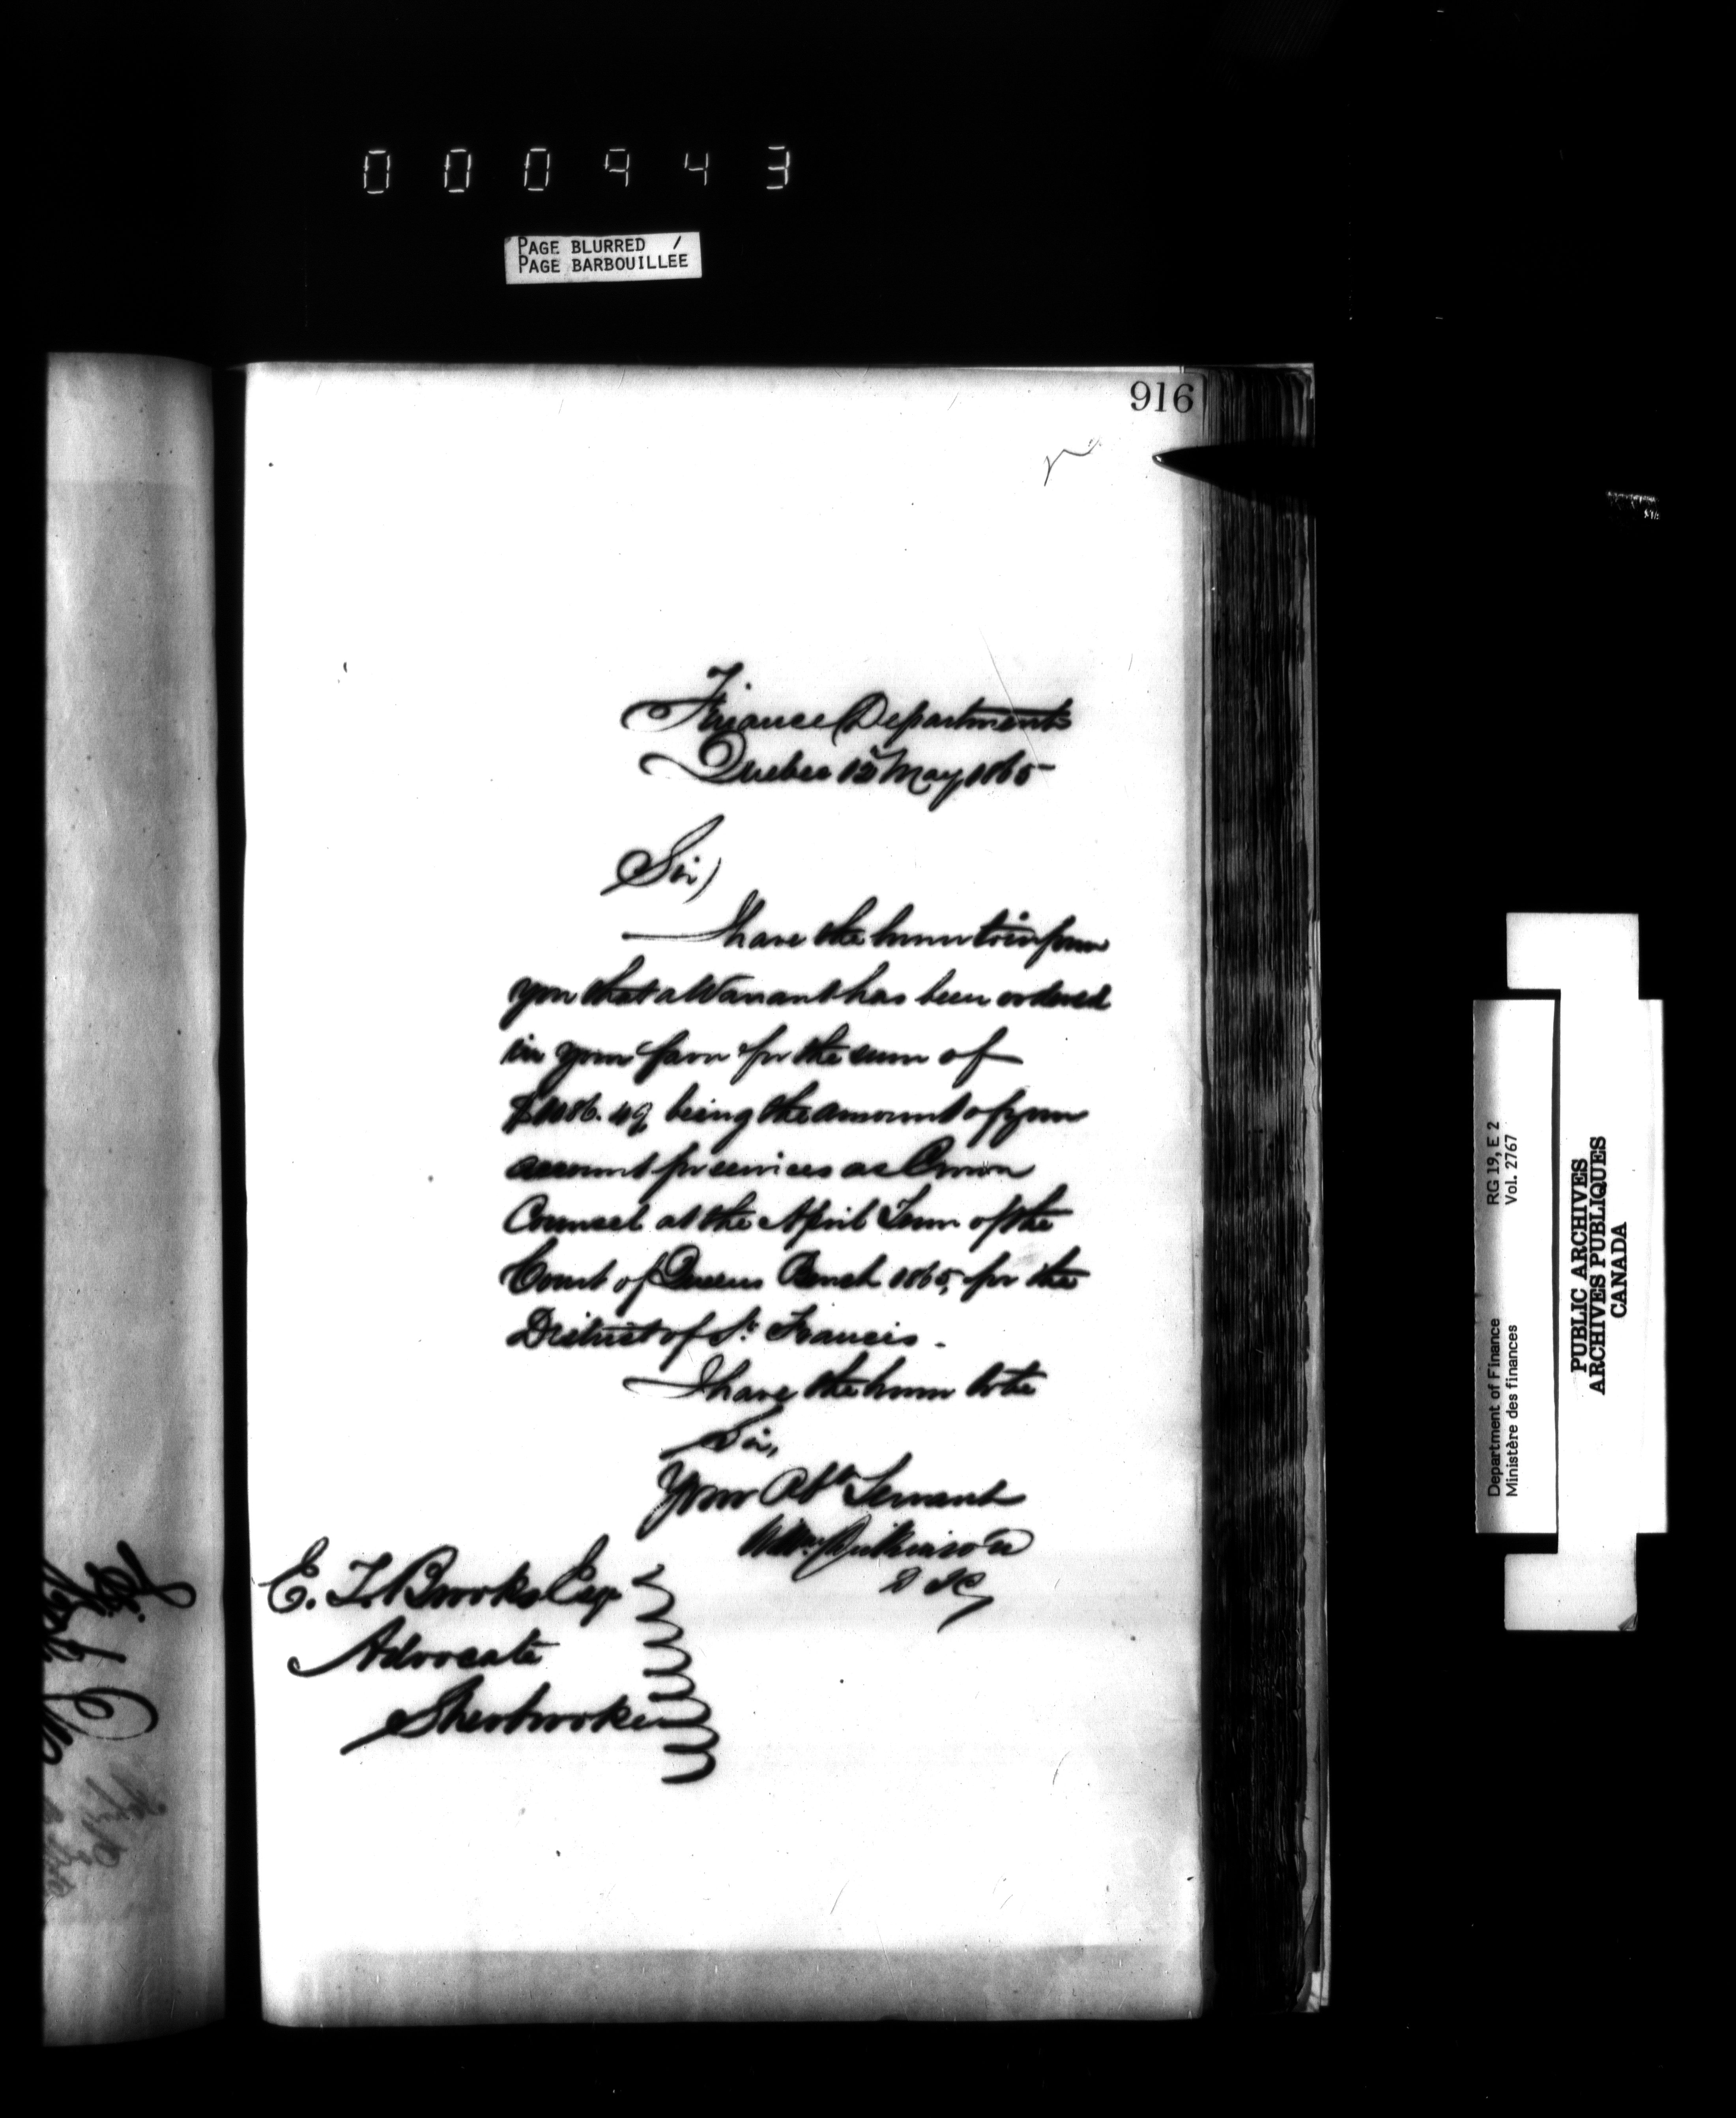 000943
PAGE BLURRED /
PAGE BARBOUILLÉE
916
Finance Department
Quebec 12 May 1865
Sir,
I have the honor to inform
you that a Warrant has been ordered
in your favor for the sum of
being the amount of your
account for services as Crown
Counsel at the April Term of the
Court of Queens Bench 1865, for the
District of St. Francis.
I have the honor to be
Sir,
Your Obt Servant
Wm Dickinson
E. T. Brooks Esqr
Advocate
Sherbrooke
Department of Finance RG 19, E 2
Ministère des finances Vol. 2767
PUBLIC ARCHIVES
ARCHIVES PUBLIQUES
CANADA